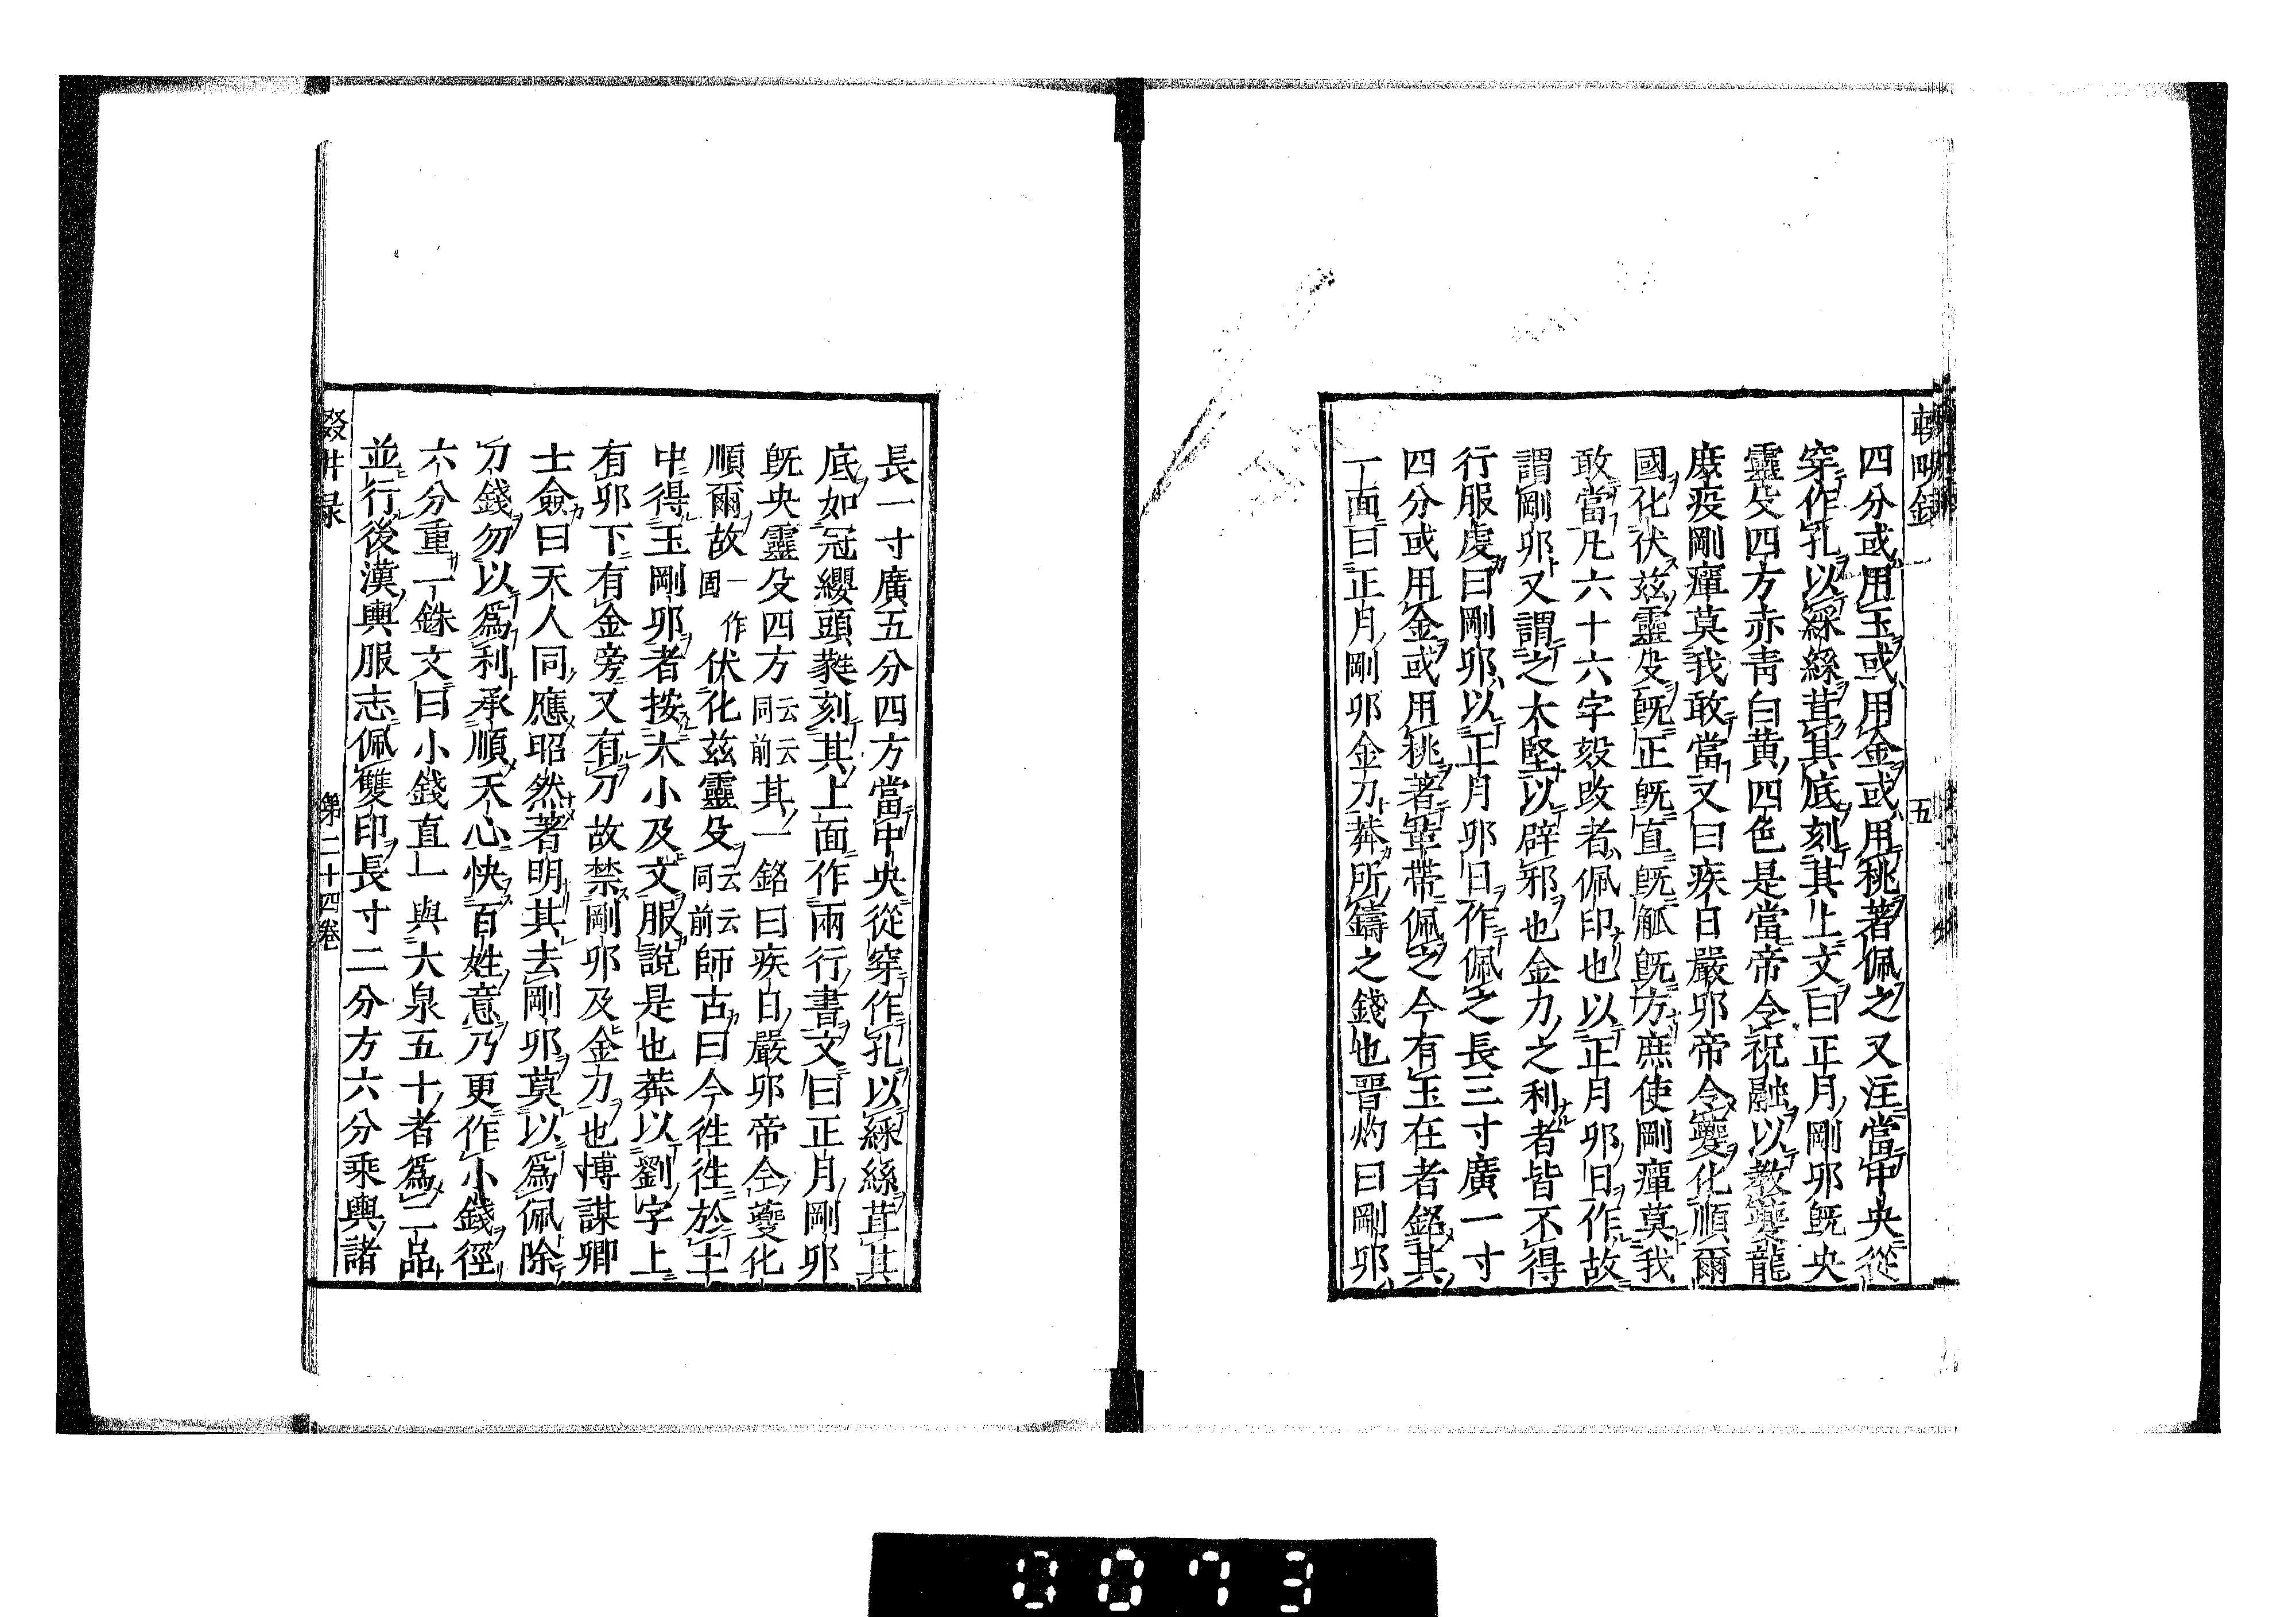 四分或用玉或用金或用桃著佩之又注當中央從
穿作孔以綵絲茸其底刻其上文曰正月剛卯既央
靈殳四方赤青白黄四色是當帝令祝融以教夔龍
庶疫剛癉莫我敢當又曰疾日嚴卯帝令夔化順爾
國化伏兹靈殳既正既直既觚既方庶使剛癉莫我
敢當凡六十六字㱾攺者佩印也以正月卯日作故
謂剛卯又謂之大堅以辟邪也金刀之利者皆不得
行服虔曰剛卯以正月卯日作佩之長三寸廣一寸
四分或用金或用桃著革帶佩之今有玉在者銘其
一面曰正月剛卯金刀莽所鑄之錢也晋灼曰剛卯
五
長一寸廣五分四方當中央從穿作孔以綵絲茸其
底如冠纓頭蕤刻其上面作兩行書文曰正月剛卯
既央靈殳四方云云同前其一銘曰疾日嚴卯帝令夔化
順爾故一作固伏化兹靈殳云云同前師古曰今徃徃於土
中得玉剛卯者按大小及文服說是也莽以劉字上
有卯下有金旁又有刀故禁剛卯及金刀也博謀卿
士僉曰天人同應昭然著明其去剛卯莫以爲佩除
刀錢勿以爲利承順天心快百姓意乃更作小錢徑
六分重一銖文曰小錢直一與大泉五十者爲二品
並行後漢輿服志佩雙印長寸二分方六分乘輿諸
第二十四卷
0073